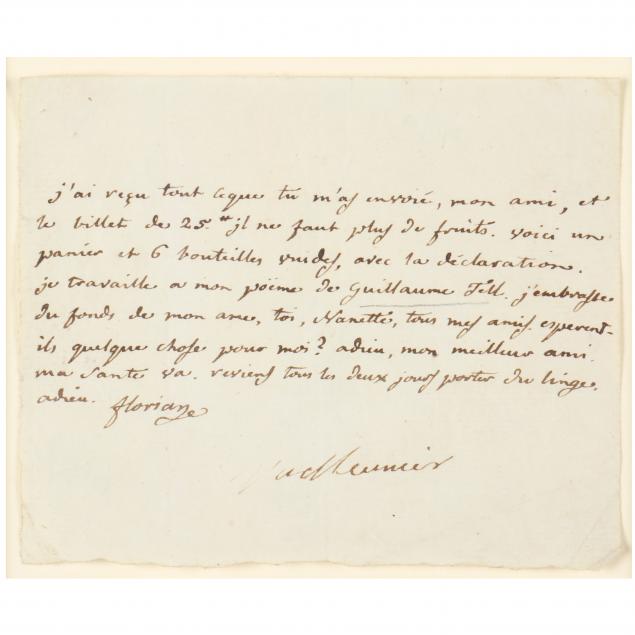 j'ai reçu tout ceque tu m'as envoié, mon ami, et
le billet de 25.# il ne faut plus de fruits. voici un
panier et 6 bouteilles vuides, avec la déclaration.
je travaille a mon poëme de Guillaume Tell. j'embrasse
du fonds de mon ame, toi, Nanette, tous mes amis. esperent-
ils quelque chose pour moi? adieu, mon meilleur ami.
ma santé va. reviens tous les deux jours porter du linge.
adieu. florian